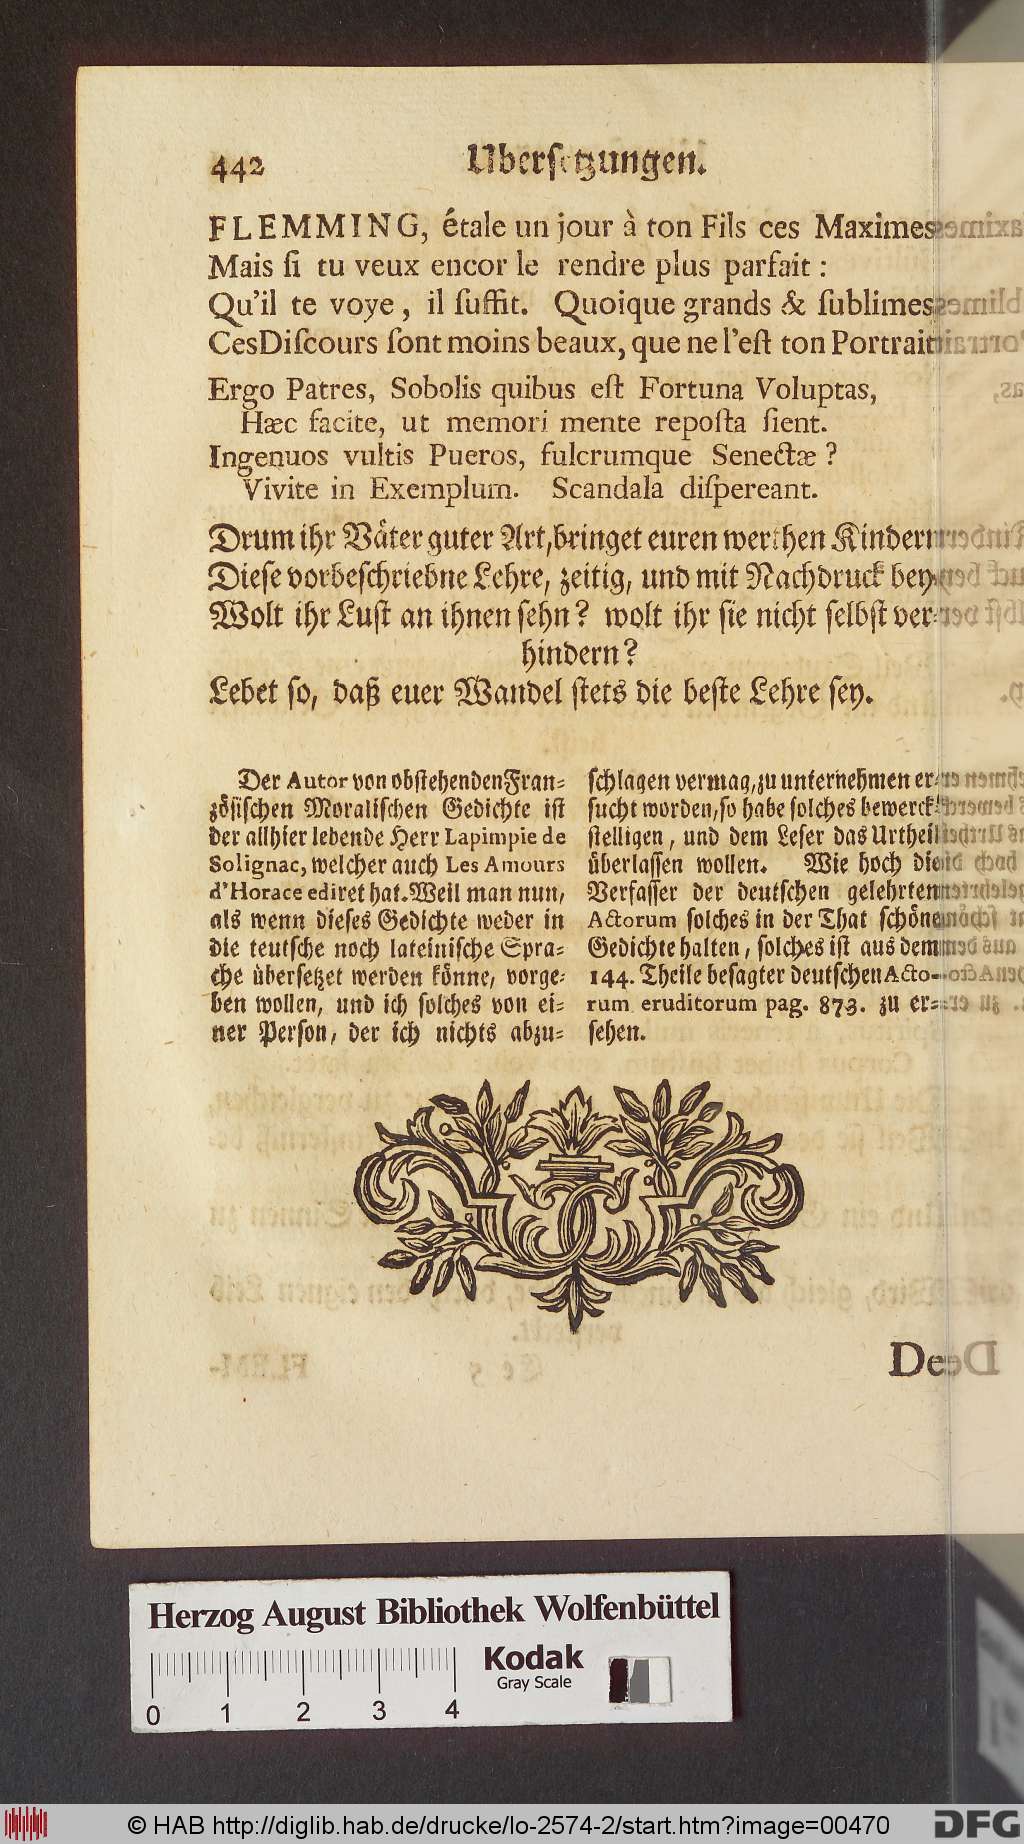 442 Ubersetzungen.
FLEMMING, étale un jour à ton Fils ces Maximes
Mais ſi tu veux encor le rendre plus parfait :
Qu'il te voye, il ſuffit. Quoique grands & ſublimes
CesDiſcours ſont moins beaux, que ne l'eſt ton Portrait
Ergo Patres, Sobolis quibus eſt Fortuna Voluptas,
Hæc facite, ut memori mente repoſta ſient.
Ingenuos vultis Pueros, fulcrumque Senectæ ?
Vivite in Exemplum. Scandala diſpereant.
Drum ihr Väter guter Art, bringet euren werthen Kindern
Dieſe vorbeſchriebne Lehre, zeitig, und mit Nachdruck bey
Wolt ihr Luſt an ihnen ſehn? wolt ihr ſie nicht ſelbſt ver-
hindern?
Lebet ſo, daß euer Wandel ſtets die beſte Lehre ſey.
Der Autor von obſtehenden Fran-
zöſiſchen Moraliſchen Gedichte iſt
der allhier lebende Herr Lapimpie de
Solignac, welcher auch Les Amours
d'Horace ediret hat. Weil man nun,
als wenn dieſes Gedichte weder in
die teutſche noch lateiniſche Spra-
che überſetzet werden könne, vorge-
ben wollen, und ich ſolches von ei-
ner Perſon, der ich nichts abzu-
ſchlagen vermag, zu unternehmen er-
ſucht worden, ſo habe ſolches bewerck-
ſtelligen, und dem Leſer das Urtheil
überlaſſen wollen. Wie hoch die
Verfaſſer der deutſchen gelehrten
Actorum ſolches in der That ſchöne
Gedichte halten, ſolches iſt aus dem
144. Theile beſagter deutſchen Acto-
rum eruditorum pag. 873. zu er-
ſehen.
De
Herzog August Bibliothek Wolfenbüttel
Kodak
Gray Scale
0 1 2 3 4
© HAB http://diglib.hab.de/drucke/lo-2574-2/start.htm?image=00470
DFG